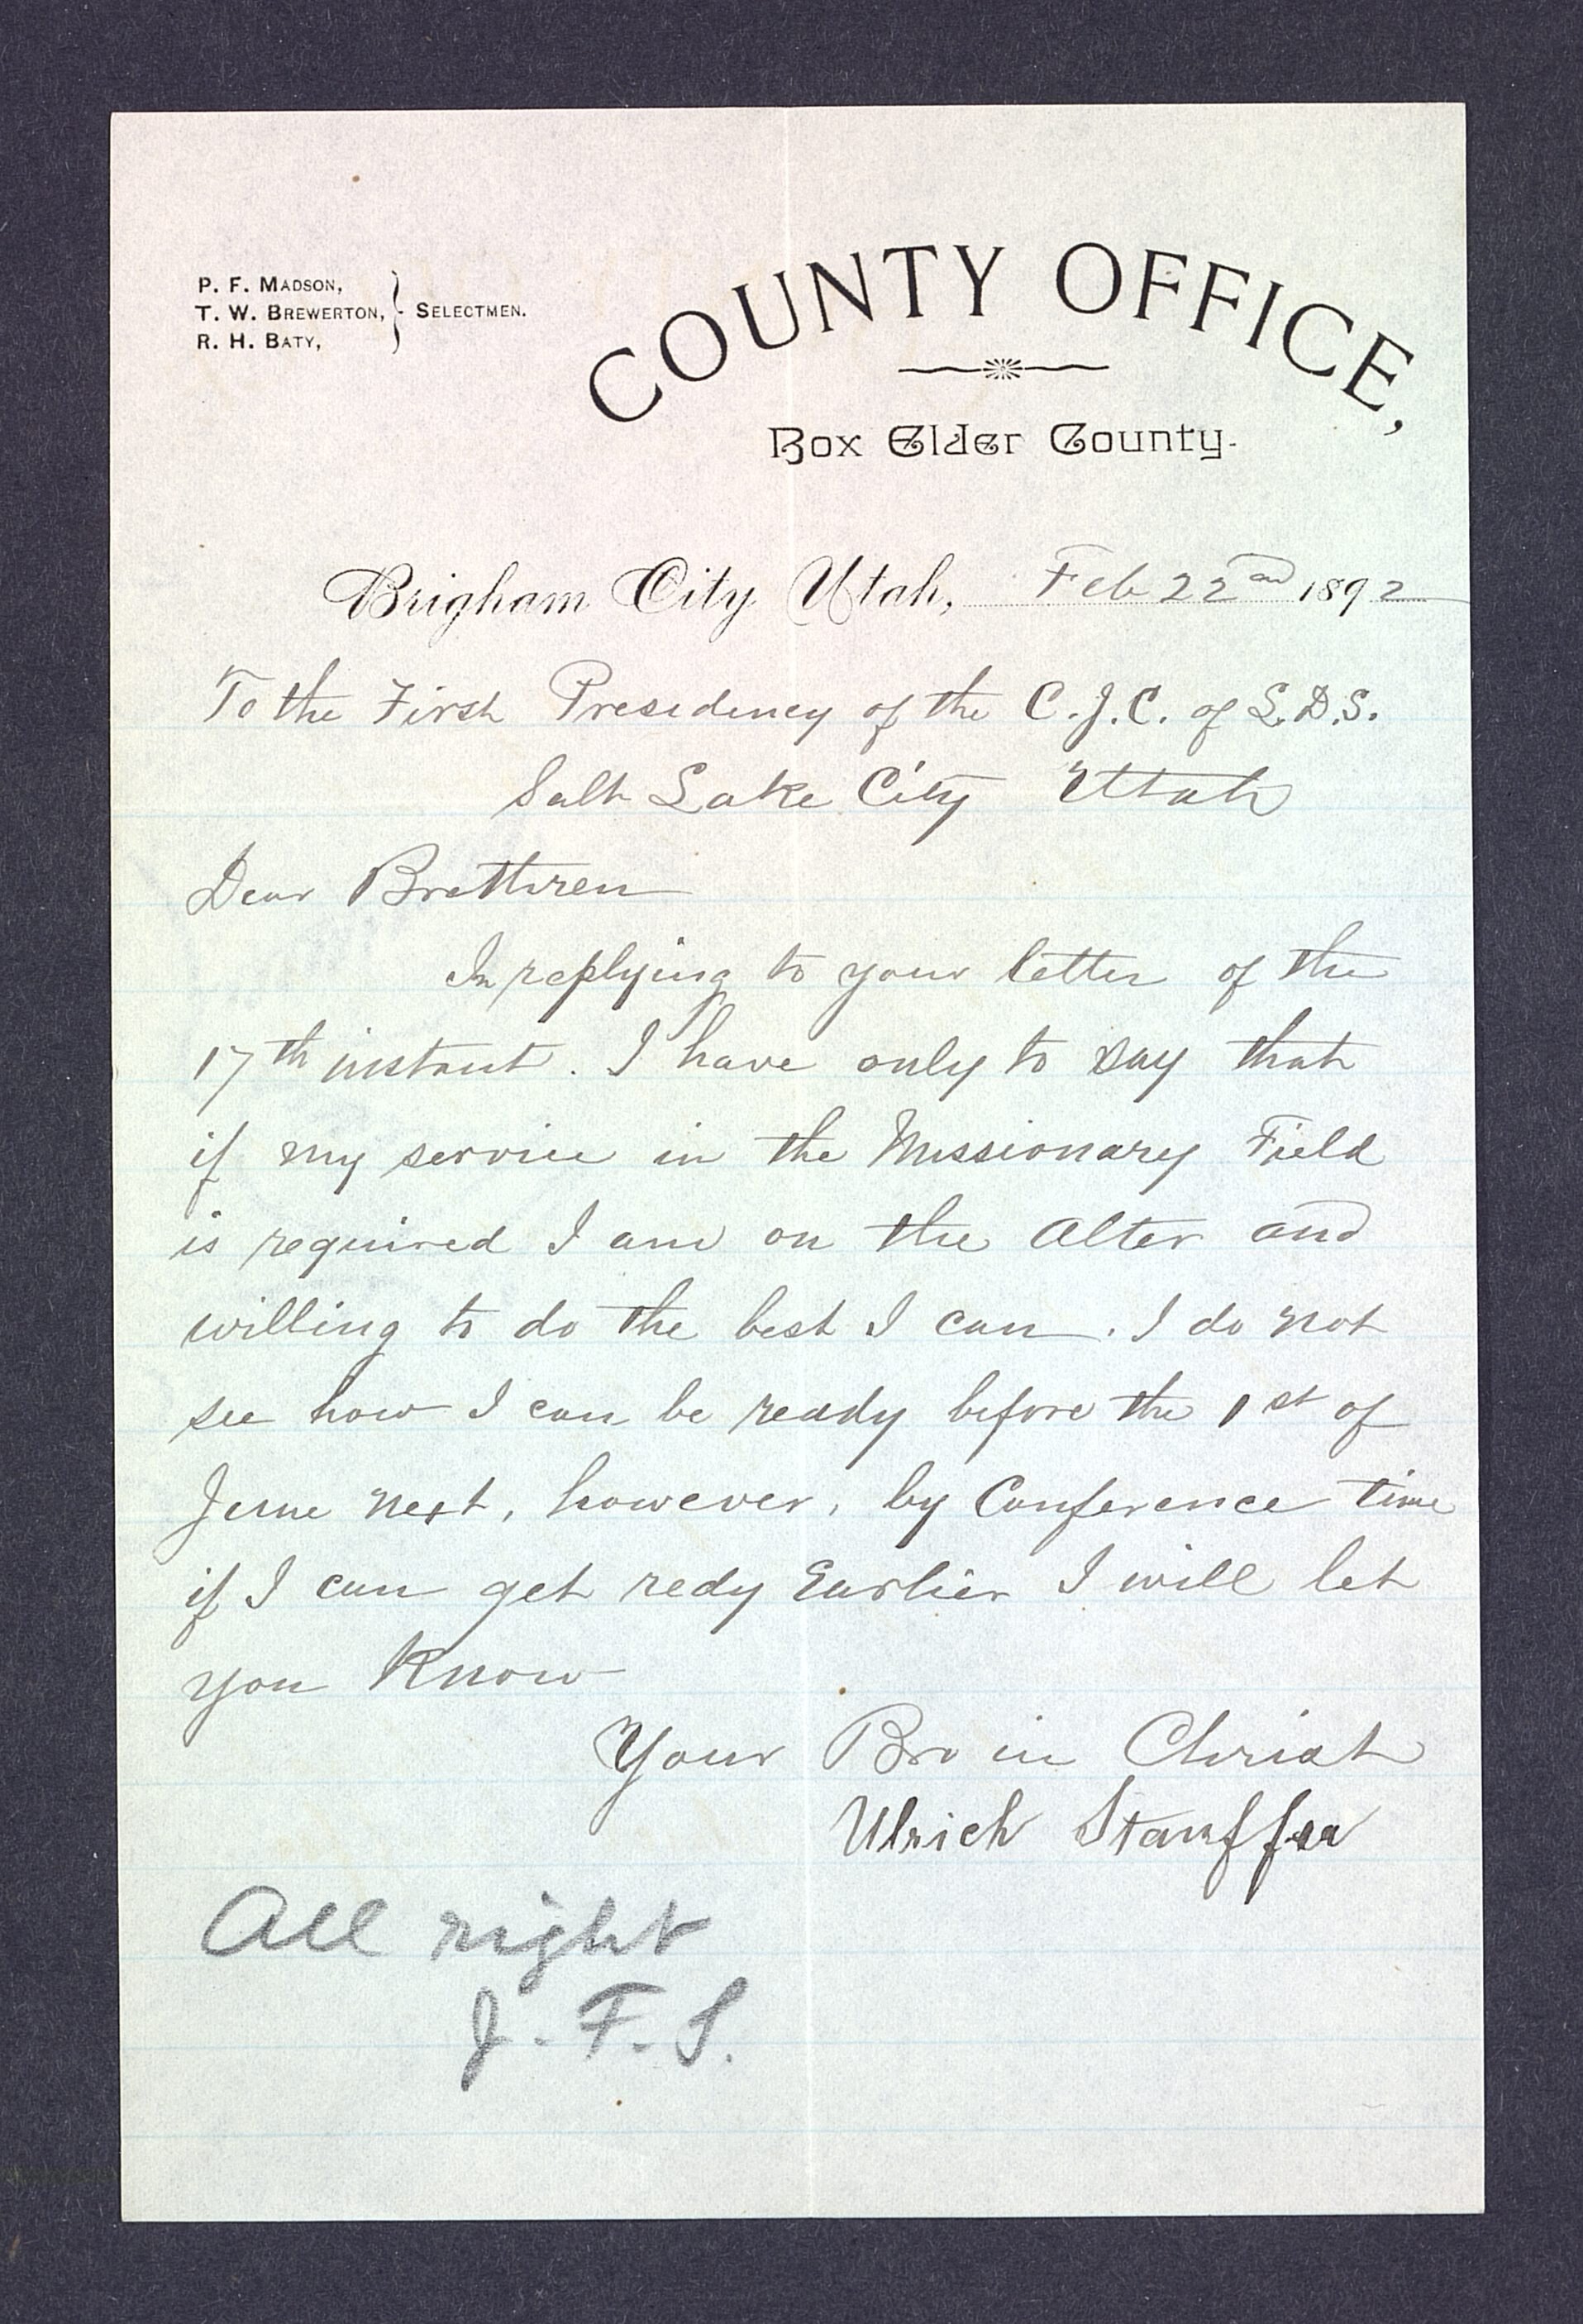 P. F. MADSON,
T. W. BREWERTON, } SELECTMEN.
R. H. BATY,
COUNTY OFFICE,
Box Elder County.
Brigham City Utah, Feb 22nd 1892
To the First Presidency of the C.J.C. of L.D.S.
Salt Lake City Utah
Dear Brethren
In replying to your letter of the
17th instant. I have only to say that
if my service in the Missionary Field
is required I am on the Alter and
willing to do the best I can. I do not
see how I can be ready before the 1st of
June next, however, by Conference time
if I can get redy Earlier I will let
you Know
Your Bro in Christ
Ulrich Stauffer
All right
J. F. S.